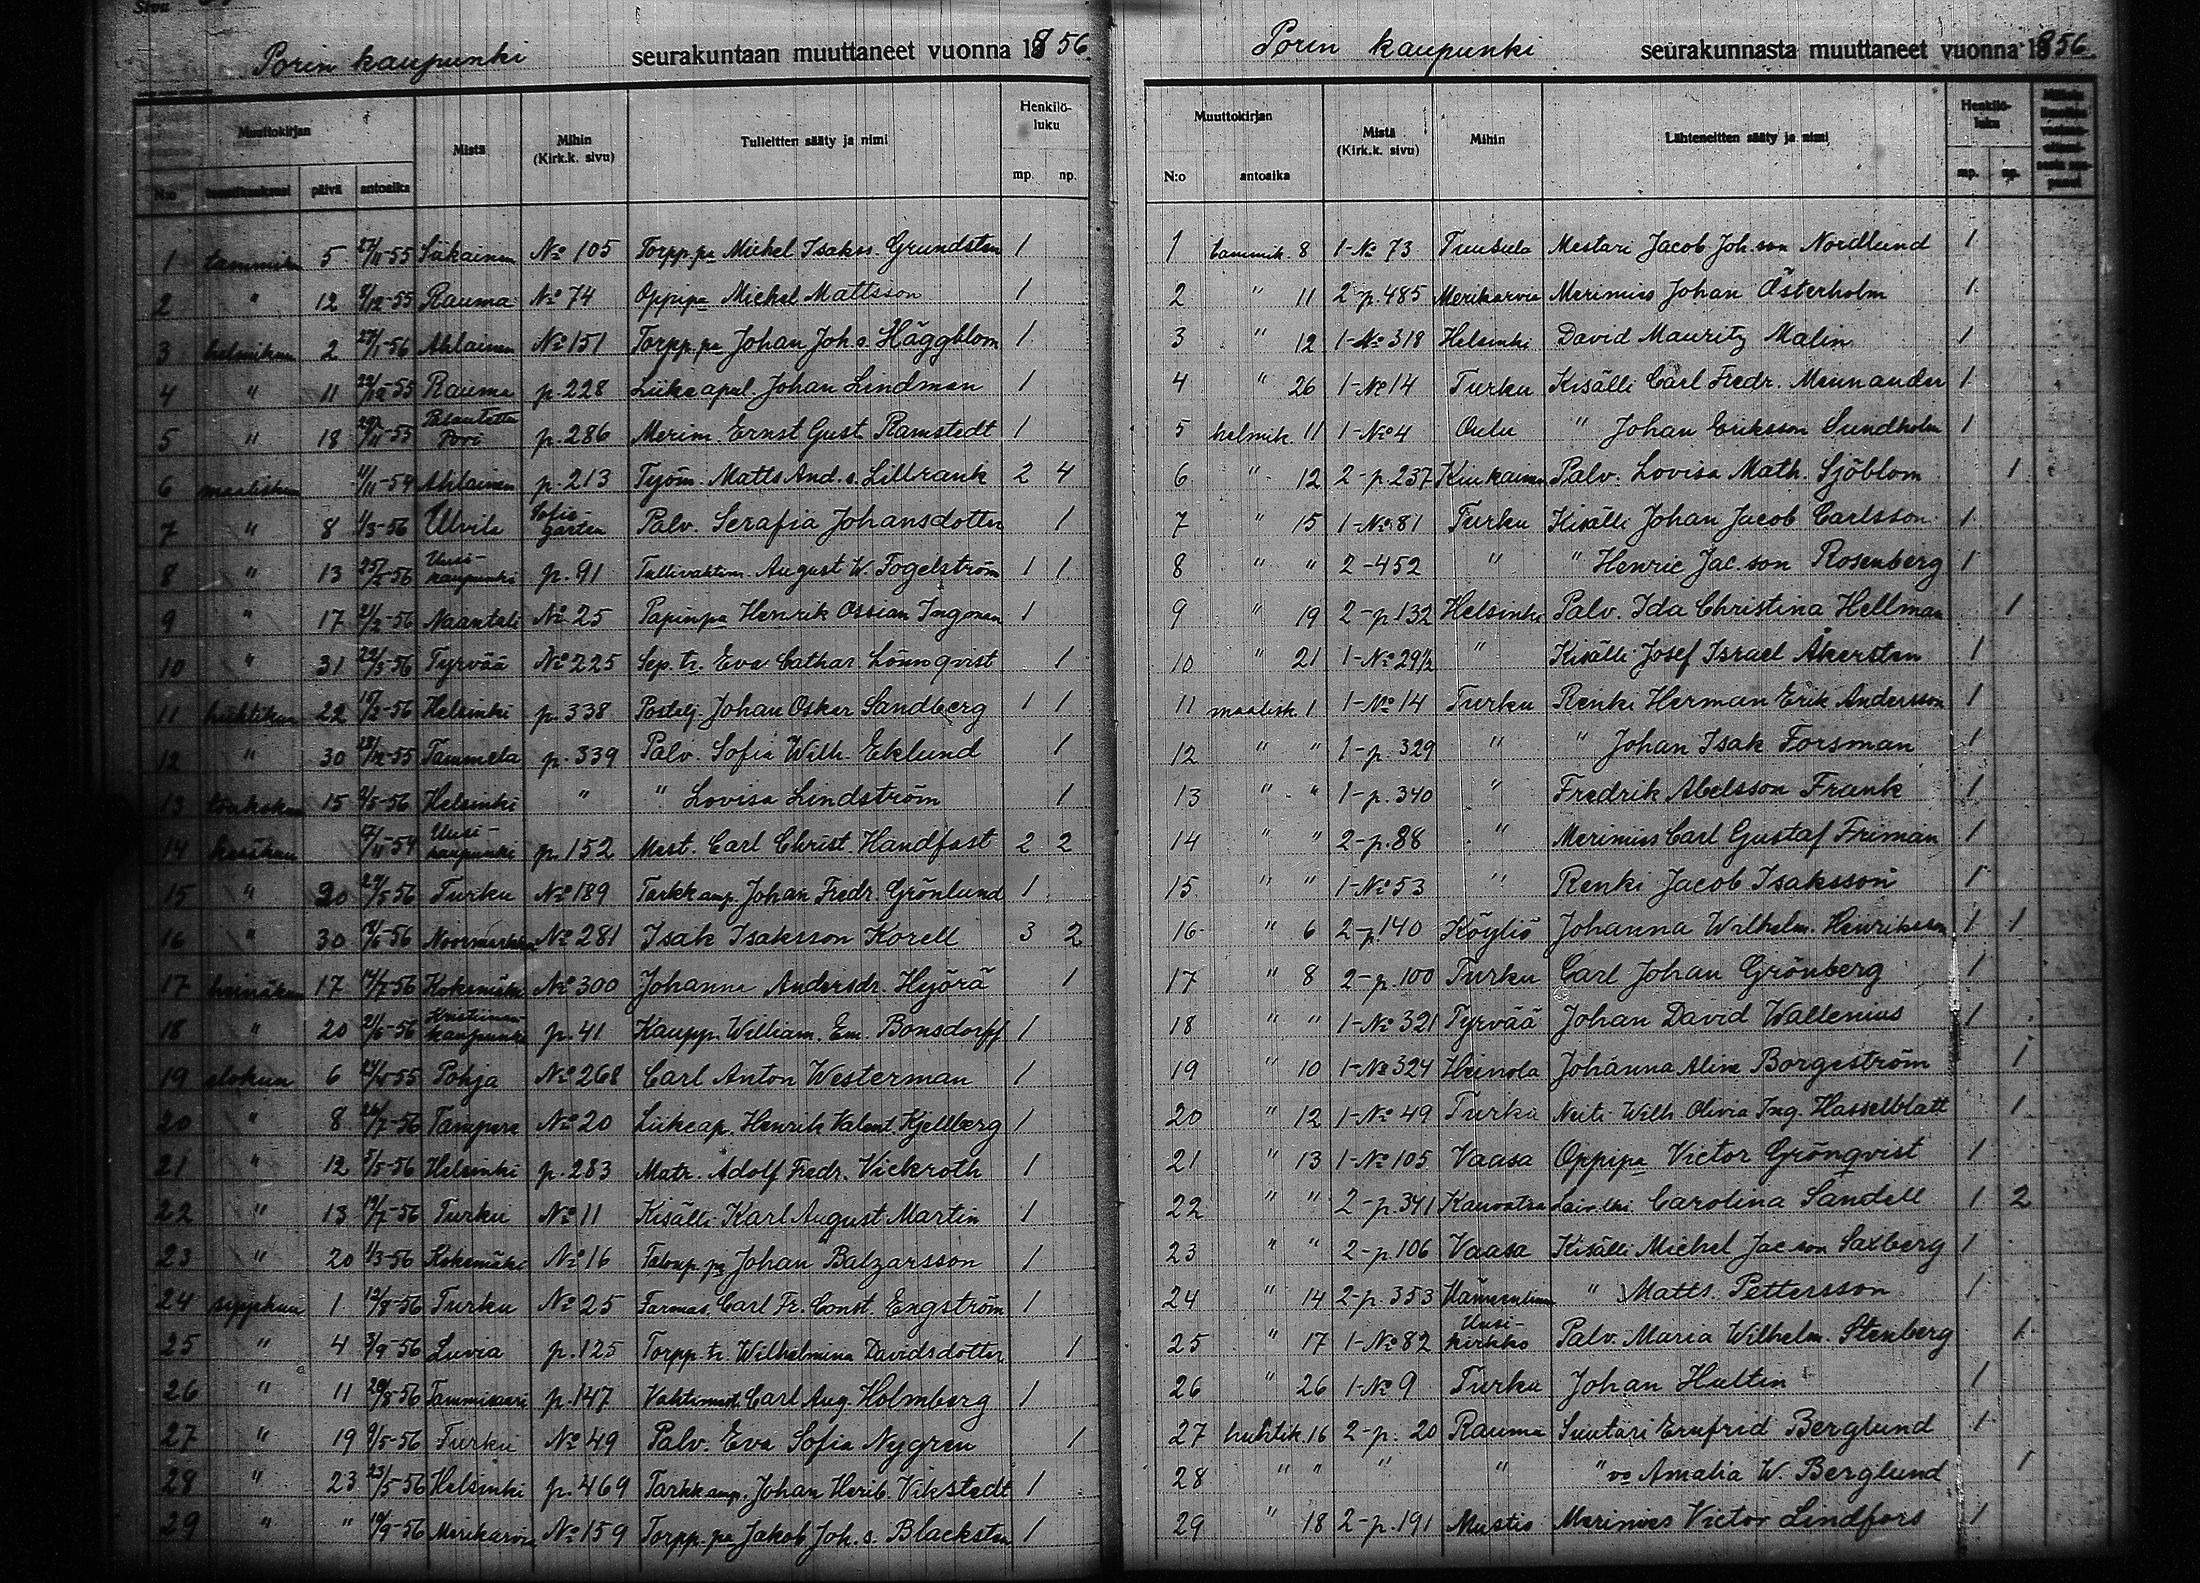 Sivu
Porin kaupunki seurakuntaan muuttaneet vuonna 1856.
Muuttokirjan Mistä Mihin (Kirk.k. sivu) Tulleitten sääty ja nimi Henkilö-luku
N:o päivä antoaika mp. np.
1 tammikuu 5 27/11-55 Siikainen No 105 Torpp.pa Michel Isakss. Grundsten 1
2 " 12 9/12-55 Rauma No 74 Oppipa Michel Mattsson 1
3 helmikuu 2 27/1-56 Ahlainen No 151 Torpp.pa Johan Joh.s. Häggblom 1
4 " 11 22/12-55 Rauma p. 228 Liikeapul. Johan Lindman 1
5 " 18 29/11-55 Pori p. 286 Merim. Ernst Gust. Ramstedt 1
6 maaliskuu 11/11-54 Ahlainen p. 213 Työm. Matts And.s. Lillrank 2 4
7 " 8 1/3-56 Ulvila Sofie-garten Palv. Serafia Johansdotter 1
8 " 13 25/2-56 Uusi-kaupunki p. 91 Tullivahtim. August W. Fogelström 1 1
9 " 17 21/2-56 Naantali No 25 Papinpa Henrik Ossian Ingman 1
10 " 31 22/3-56 Tyrvää No 225 Sep. tr. Eva Cathar. Lönnqvist 1
11 huhtikuu 22 18/2-56 Helsinki p. 338 Postelj. Johan Oskar Sandberg 1 1
12 " 30 28/12-55 Tammela p. 339 Palv. Sofia Wilh. Eklund 1
13 toukokuu 15 2/5-56 Helsinki " " Lovisa Lindström 1
14 kesäkuu 17/11-54 Uusi-kaupunki p. 152 Mest. Carl Christ. Handfast 2 2
15 " 20 29/5-56 Turku No 189 Tarkk.amp. Johan Fredr. Grönlund 1
16 " 30 18/6-56 Noormarkku No 281 Isak Isaksson Korell 3 2
17 heinäkuu 17 14/7-56 Kokemäki No 300 Johanna Andersdr. Hejörä 1
18 " 20 21/6-56 Kristiinan-kaupunki p. 41 Kaupp. William. Em. Bonsdorff 1
19 elokuu 6 Pohja No 268 Carl Anton Westerman 1
20 " 8 26/7-56 Tampere No 20 Liikeap. Henrik Valent. Kjellberg 1
21 " 12 5/5-56 Helsinki p. 283 Matr. Adolf Fredr. Vickroth 1
22 " 13 19/7-56 Turku No 11 Kisälli Karl August Martin 1
23 " 20 1/3-56 Kokemäki No 16 Taloup.pa Johan Balzarsson 1
24 syyskuu 1 12/8-56 Turku No 25 Farmas. Carl Fr. Const. Engström 1
25 " 4 3/9-56 Luvia p. 125 Torpp. tr. Wilhelmina Davidsdotter 1
26 " 11 28/8-56 Tammisaari p. 147 Vahtimest. Carl Aug. Holmberg 1
27 " 19 9/5-56 Turku No 49 Palv. Eva Sofia Nygren 1
28 " 23 23/5-56 Helsinki p. 469 Tarkk.amp. Johan Herib. Vikstedt 1
29 " " 19/9-56 Merikarvia No 159 Torpp.pa Jakob Joh.s. Blacksten 1
Porin kaupunki seurakunnasta muuttaneet vuonna 1856.
Muuttokirjan Mistä (Kirk.k. sivu) Mihin Lähteneitten sääty ja nimi Henkilö-luku
N:o antoaika mp. np.
1 tammik. 8 1-No 73 Tuusula Mestari Jacob Joh.son Nordlund 1
2 " 11 2-p. 485 Merikarvia Merimies Johan Österholm 1
3 " 12 1-No 318 Helsinki David Mauritz Malin 1
4 " 26 1-No 14 Turku Kisälli Carl Fredr. Mennander 1
5 helmik. 11 1-No 4 Oulu " Johan Eriksson Sundholm 1
6 " 12 2-p. 237 Kiukainen Palv. Lovisa Math. Sjöblom 1
7 " 15 1-No 81 Turku Kisälli Johan Jacob Carlsson 1
8 " " 2-452 " " Henric Jac.son Rosenberg 1
9 " 19 2-p. 132 Helsinki Palv. Ida Christina Hellman 1
10 " 21 1-No 29 1/2 " Kisälli Josef Israel Åkersten 1
11 maalisk. 1 1-No 14 Turku Renki Herman Erik Andersson 1
12 " " 1-p. 329 " " Johan Isak Forsman 1
13 " " 1-p. 340 " Fredrik Abelsson Frank 1
14 " " 2-p. 88 " Merimies Carl Gustaf Friman 1
15 " " 1-No 53 " Renki Jacob Isaksson 1
16 " 6 2-p. 140 Köyliö Johanna Wilhelm. Henriksson 1 1
17 " 8 2-p. 100 Turku Carl Johan Grönberg 1
18 " " 1-No 321 Tyrvää Johan David Wallenius 1
19 " 10 1-No 324 Heinola Johanna Alina Borgeström 1
20 " 12 1-No 49 Turku Neiti Wilh. Olivia Ing. Hasselblatt 1
21 " 13 1-No 105 Vaasa Oppipa Victor Grönqvist 1
22 " " 2-p. 341 Kauvatsa Laiv. Carolina Sandell 1 2
23 " " 2-p. 106 Vaasa Kisälli Michel Jacson Saxberg 1
24 " 14 2-p. 353 " Matts Pettersson 1
25 " 17 1-No 82 Uusi-kirkko Palv. Maria Wilhelm. Stenberg 1
26 " 26 1-No 9 Turku Johan Hultin 1
27 huhtik. 16 2-p. 20 Rauma Suutari Ernfrid Berglund 1
28 " " " " " vo Amalia W. Berglund 1
29 " 18 2-p. 191 Mustio Merimies Victor Lindfors 1